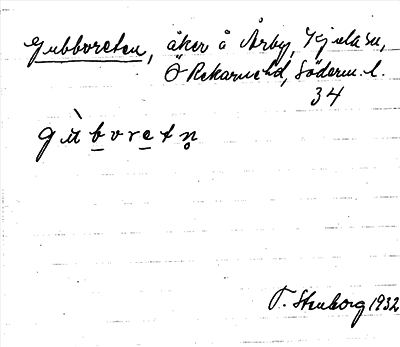 Gubboreten, åker å Årby, Kjula sn,
Ö Rekarne hd, Söderm. l.
34
gùboretn̥
T. Stenborg 1932